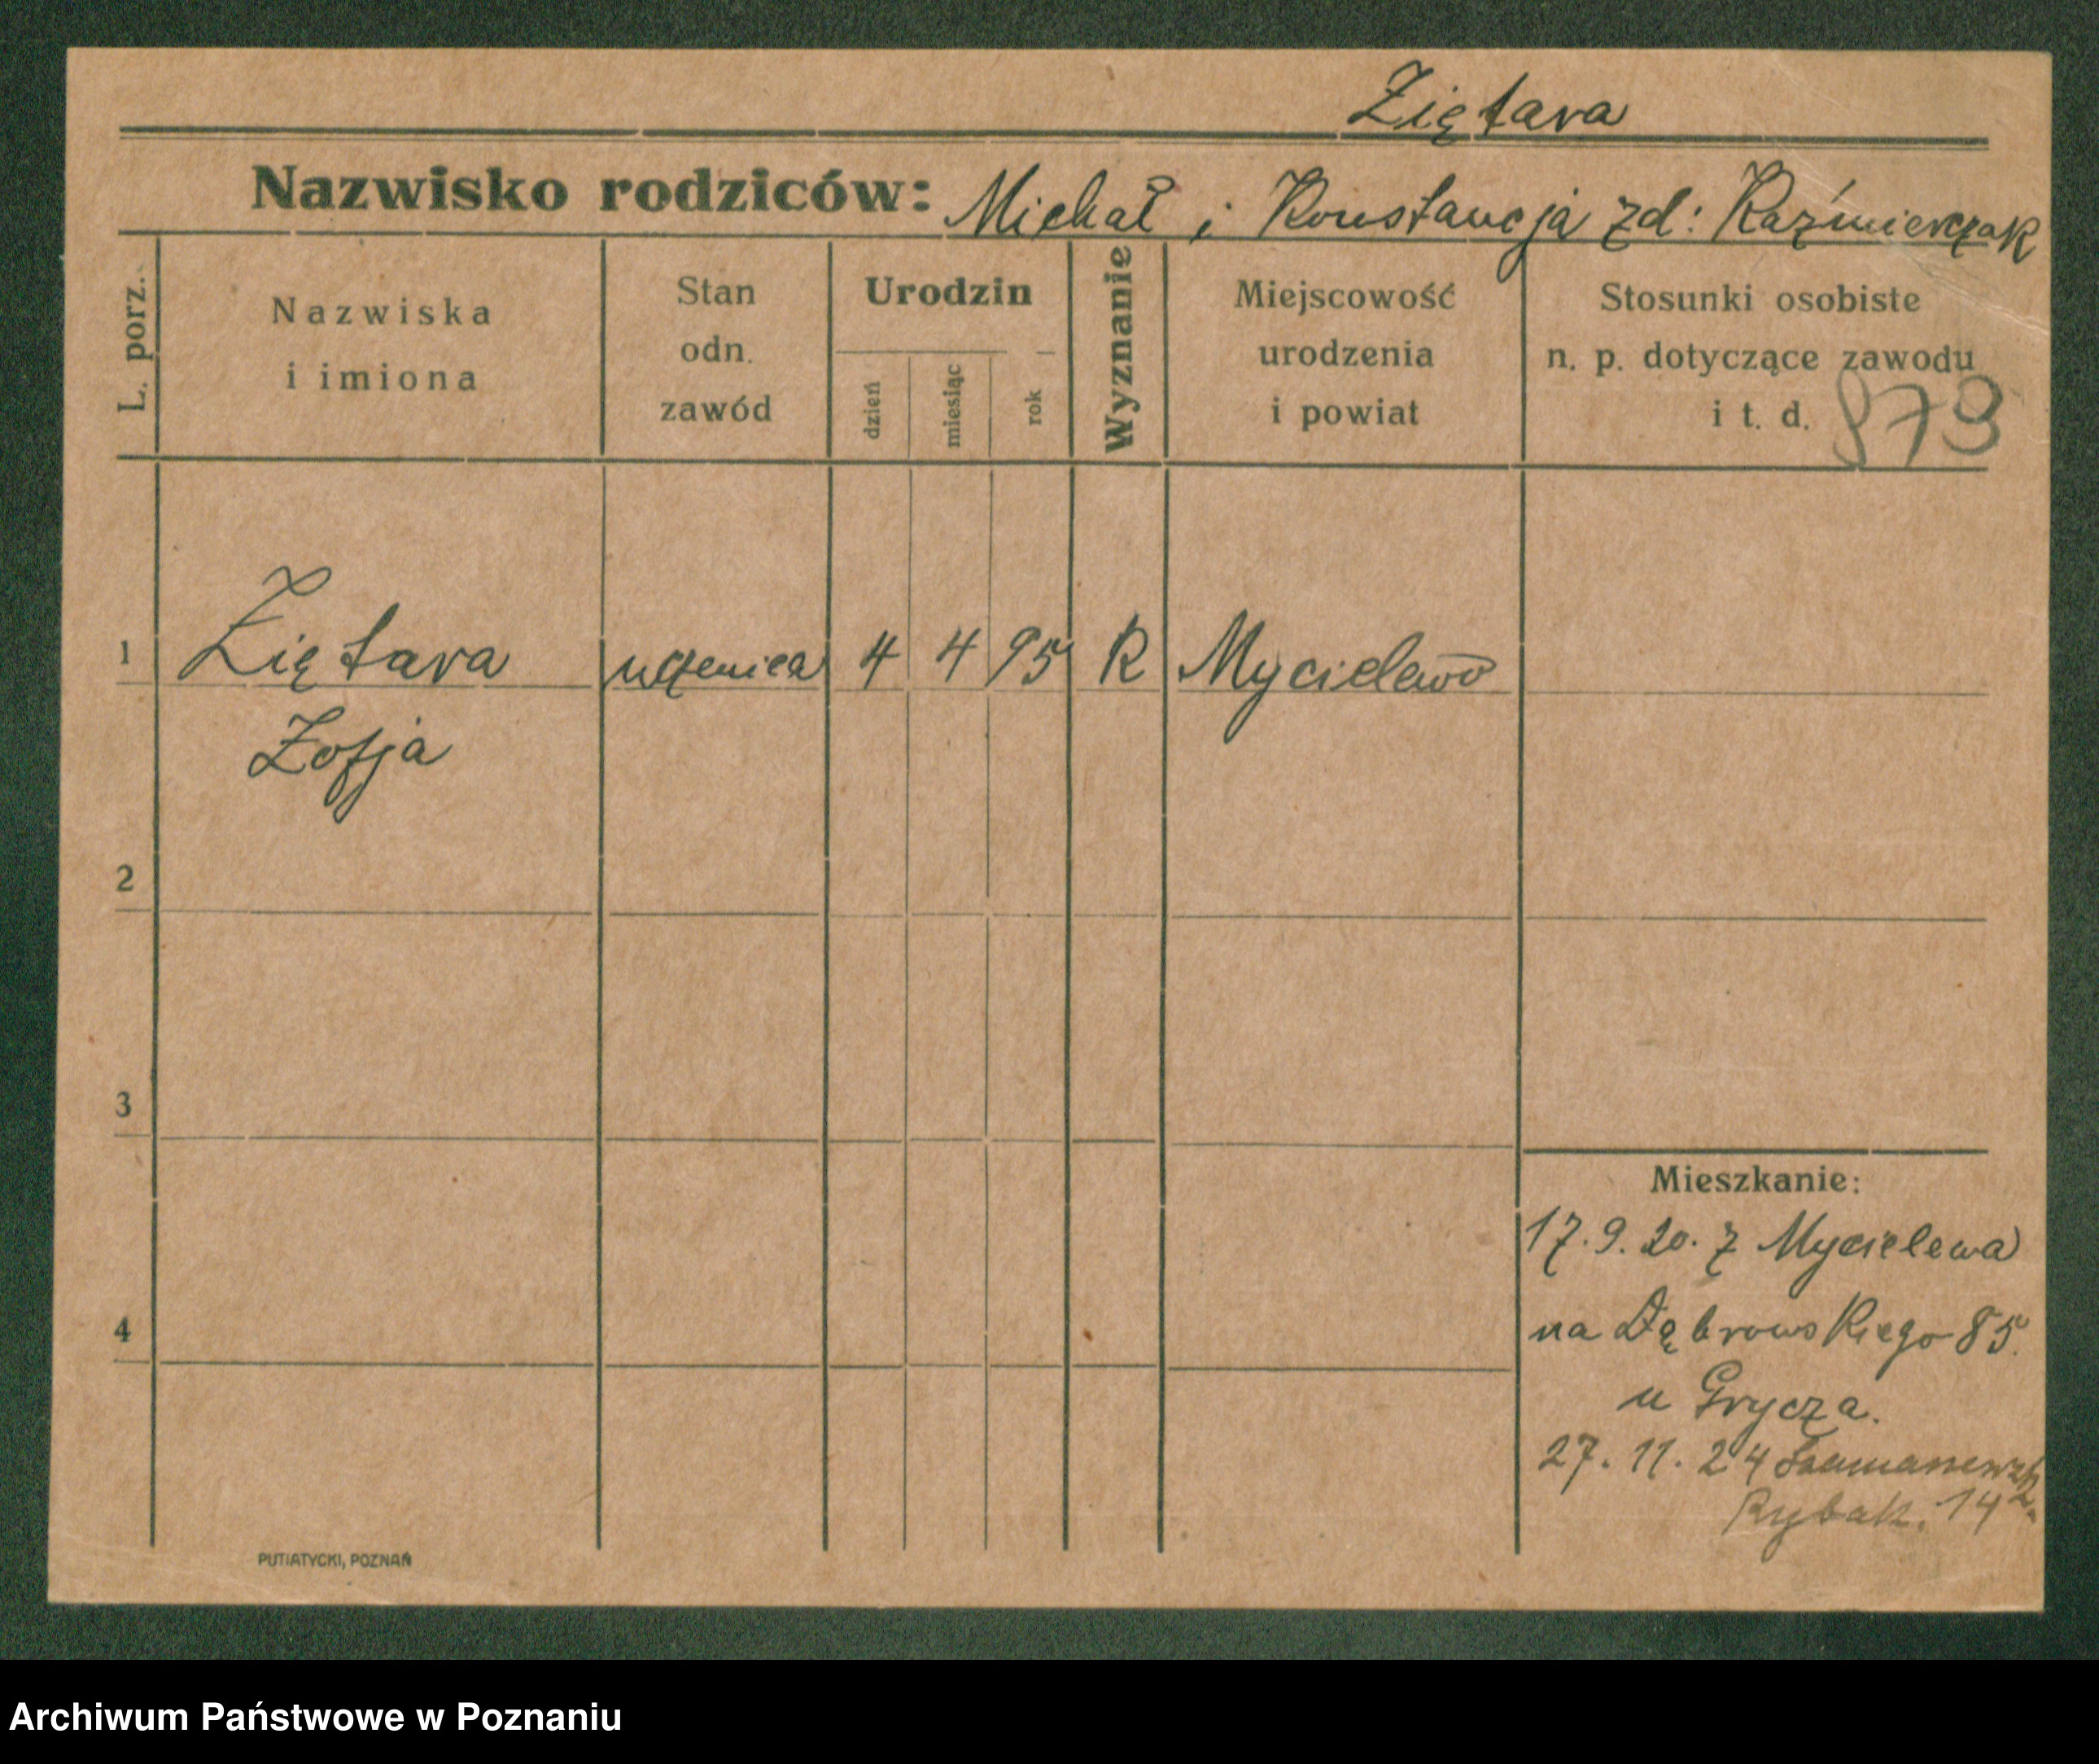 Ziętara
Nazwisko rodziców: Michał i Konstancja zd: Kaźmierczak
L. porz.
Nazwiska
i imiona
Stan
odn.
zawód
Urodzin
dzień
miesiąc
rok
Wyznanie
Miejscowość
urodzenia
i powiat
Stosunki osobiste
n. p. dotyczące zawodu
i t. d.
879
1 Ziętara uczenica 4 4 95 R Mycielewo
Zofja
2
3
4
Mieszkanie:
17.9.20. z Mycielewa
na Dąbrowskiego 85.
u Grycza.
27. 11. 24
Rybak. 14
PUTIATYCKI, POZNAŃ
Archiwum Państwowe w Poznaniu